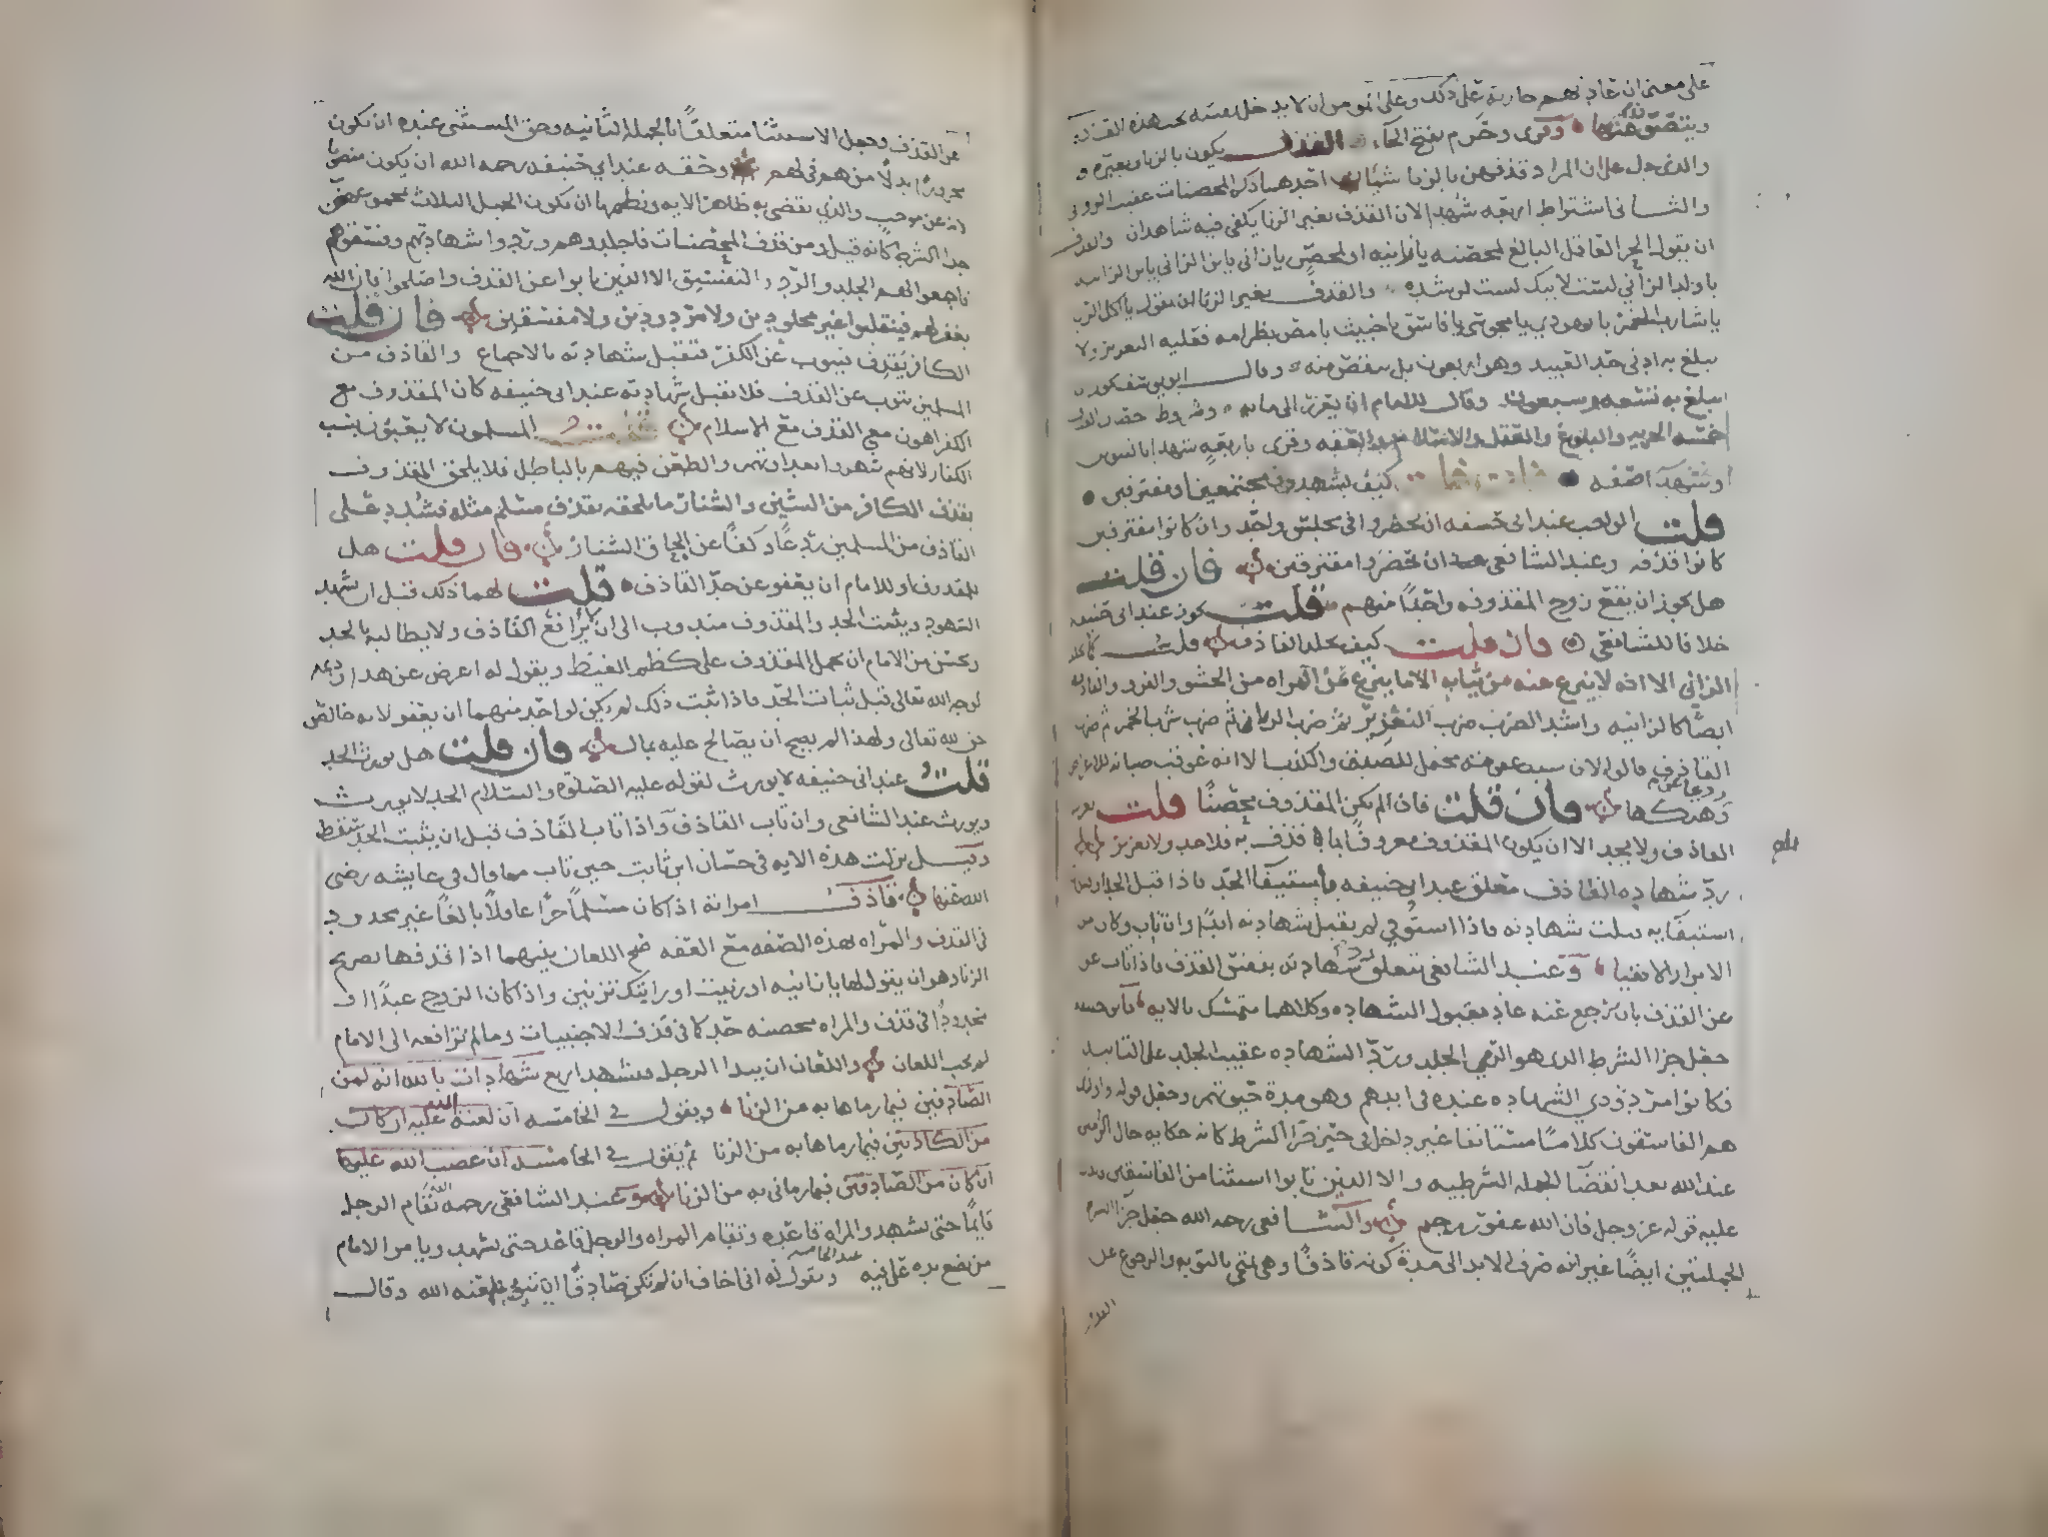 على معنى ان عادتهم جاريه على ذلك وعلى المومن ان لا يدخل نفسه تحت هذه العاده
ويتصون عنها وقرى وحرم بفتح الحآء القذف يكون بالزنا وبغيره
والذي دل على ان المراد قذفهن بالزنا شيان احدهما ذكر المحصنات عقيب الزواني
والثاني اشتراط اربعه شهدا لان القذف بغير الزنا يكفى فيه شاهدان والقذف
ان يقول الحر العاقل البالغ لمحصنه يا زانيه او لمحصن يا زاني يابن الزاني يابن الزانيه
يا ولد الزاني لست لابيك لست لرشده والقذف بغير الزنا ان يقول يا اكل الربا
يا شارب الخمر يا يهودي يا مجوسي يا فاسق يا خبيث يا ماص بظر امه فعليه التعزير ولا
يبلغ به ادنى حد العبيد وهو اربعون بل ينقص منه وقال ابو يوسف يجوز ان
يبلغ به تسعه وسبعون وقال للامام ان يعزر الى المايه وشروط احصان القذف
خمسه الحريه والبلوغ والعقل والاسلام والعفه وقرى باربعةٍ شهدا بالتنوين
وشهدآ صفه كيف يشهدون مجتمعين او مفترقين
قلت الواجب عند ابى حنيفه ان يحضروا في مجلس واحد وان كانوا مفترقين
كانوا قذفه وعند الشافعى يجوز ان يحضروا مفترقين فان قلت
هل يجوز ان يقع زوج المقذوفه واحدا منهم قلت يجوز عند ابى حنيفه
خلافا للشافعي فان قلت كيف يجلد القاذف قلت كما يجلد
الزاني الا انه لا ينزع عنه من ثيابه الا ما ينزع عن المراه من الحشو والفرو والقاذفه
ايضا كالزانيه واشد الضرب ضرب التعزير ثم ضرب الزنا ثم ضرب شرب الخمر ثم ضرب
القاذف قالوا لان سبب عقوبته محتمل للصدق والكذب الا انه عوقب صيانه للاعراض
وردعا عن هتكها فان قلت فان لم يكن المقذوف محصنا قلت يعزر
القاذف ولا يحد الا ان يكون المقذوف معروفا بما قذف به فلا حد ولا تعزير
رد شهاده القاذف متعلق عند ابى حنيفه باستيفآ الحد فاذا شهد قبل الحد او قبل تمام
استيفايه قبلت شهادته فاذا استوفي لم تقبل شهادته ابدا وان تاب وكان من
الابرار الاتقيا وعند الشافعى يتعلق رد شهادته بنفس القذف فاذا تاب عن
عن القذف بان رجع عنه عاد مقبول الشهاده وكلاهما متمسك بالايه فابو حنيفه
جعل جزا الشرط الذى هو الرمي الجلد ورد الشهاده عقيب الجلد على التابيد
فكانوا مردودي الشهاده عنده في ابدهم وهو مدة حيوتهم وجعل قوله واوليك
هم الفاسقون كلاما مستانفا غير داخل في حيز جزآ الشرط كانه حكايه حال الرامين
عند الله بعد انقضآ الجمله الشرطيه والا الذين تابوا استثنا من الفاسقين يدل
عليه قوله عز وجل فان الله غفور رحيم والشافعى رحمه الله جعل جزآ الشرط
الجملتين ايضا غير انه صرف الابد الى مدة كونه قاذفا وهى تنتهي بالتوبه والرجوع عن
القذف
عن القذف وجعل الاستثنا متعلقا بالجمله الثانيه وحق المستثنى عنده ان يكون
مجرورا بدلا من هم في لهم وحقه عند ابي حنيفه رحمه الله ان يكون منصوبا
لانه عن موجب والذي يقتضى به ظاهر الايه ونظمها ان تكون الجمل الثلاث بمجموعهن
جزا الشرط كانه قيل ومن قذف المحصنات فاجلدوهم وردوا شهادتهم وفسقوهم
فاجمعوا لهم الجلد والرد والتفسيق الا الذين تابوا عن القذف واصلحوا فان الله
يغفر لهم فينقلبوا غير مجلودين ولا مردودين ولا مفسقين فان قلت
الكافر يقذف فيتوب عن الكفر فتقبل شهادته بالاجماع والقاذف من
المسلمين يتوب عن القذف فلا تقبل شهادته عند ابى حنيفه كان القذف مع
الكفر اهون من القذف مع الاسلام المسلمون لا يعبؤن بسب
الكفار لانهم شهروا بعداوتهم والطعن فيهم بالباطل فلا يلحق المقذوف
بقذف الكافر من الشين والشنار ما يلحقه بقذف مسلم مثله فشدد على
القاذف من المسلمين ردعا وكفا عن الحاق الشنار فان قلت هل
للمقذوف او للامام ان يعفو عن حد القاذف قلت لهما ذلك قبل ان يشهد
الشهود ويثبت الحد والمقذوف مندوب الى ان لا يرافع القاذف ولا يطالبه بالحد
ويحسن من الامام ان يحمل المقذوف على كظم الغيظ ويقول له اعرض عن هذا ودعه
لوجه الله تعالى قبل ثبات الحد فاذا ثبت ذلك لم يكن لواحد منهما ان يعفو لانه خالص
حق الله تعالى ولهذا لم يصح ان يصالح عليه بمال فان قلت هل يورث الحد
قلت عند ابى حنيفه لا يورث لقوله عليه الصلوة والسلام الحد لا يورث
ويورث عند الشافعى وان تاب القاذف واذا تاب القاذف قبل ان يثبت الحد سقط
وقيل نزلت هذه الايه في حسان ابن ثابت حين تاب مما قال في عايشه رضى
الله عنها قاذف امراته اذا كان مسلما حرا عاقلا بالغا غير محدود
في القذف والمراه بهذه الصفه مع العفه صح اللعان بينهما اذا قذفها بصريح
الزنا وهو ان يقول لها يا زانيه او زنيت او رايتك تزنين واذا كان الزوج عبدا او
محدودا في قذف والمراه محصنه حد كما في قذف الاجنبيات وما لم ترافعه الى الامام
لم يجب اللعان واللعان ان يبدا الرجل فيشهد اربع شهادات بالله انه لمن
الصادقين فيما رماها به من الزنا ويقول في الخامسه ان لعنة الله عليه ان كان
من الكاذبين فيما رماها به من الزنا ثم تقول في الخامسه ان غضب الله عليها
ان كان من الصادقين فيما رمانى به من الزنا وعند الشافعى رحمه الله يقام الرجل
قايما حتى يشهد والمراه قاعده وتقام المراه والرجل قاعد حتى تشهد ويامر الامام
من يضع يده على فيه عند الخامسه ويقول له انى اخاف ان لم تكن صادقا ان تبوء بلعنه الله وقال